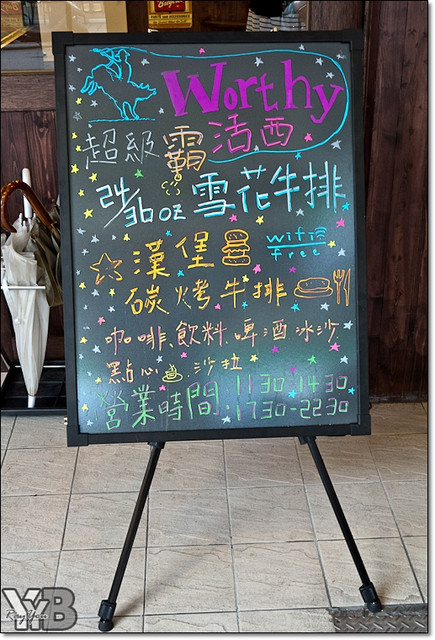 Worthy
活西
超級霸
24/30oz 雪花牛排
漢堡 wifi free
碳烤牛排
咖啡.飲料.啤酒冰沙.
點心.沙拉
營業時間.1130-1430
.1730-2230
YYB